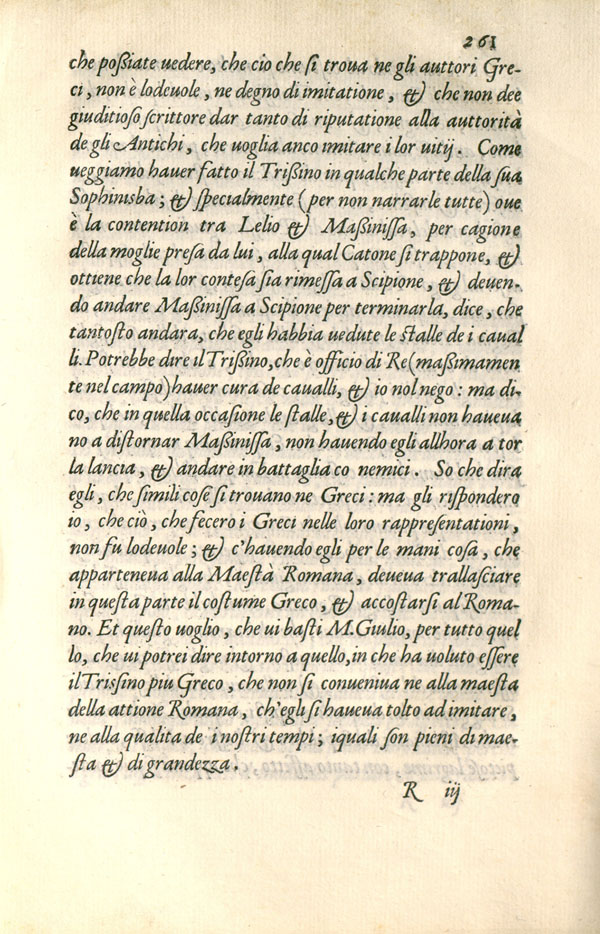 261
che poßiate uedere, che cio che ſi troua ne gli auttori Gre-
ci, non è lodeuole, ne degno di imitatione, & che non dee
giuditioſo ſcrittore dar tanto di riputatione alla auttorità
de gli Antichi, che uoglia anco imitare i lor uitij. Come
ueggiamo hauer fatto il Trißino in qualche parte della ſua
Sophinisba; & ſpecialmente (per non narrarle tutte) oue
è la contention tra Lelio & Maßiniſſa, per cagione
della moglie preſa da lui, alla qual Catone ſi trappone, &
ottiene che la lor conteſa ſia rimeſſa a Scipione, & deuen-
do andare Maßiniſſa a Scipione per terminarla, dice, che
tantoſto andara, che egli habbia uedute le ſtalle de i caual
li. Potrebbe dire il Trißino, che è officio di Re (maßimamen
te nel campo) hauer cura de caualli, & io nol nego: ma di-
co, che in quella occaſione le ſtalle, & i caualli non haueua
no a diſtornar Maßiniſſa, non hauendo egli allhora a tor
la lancia, & andare in battaglia co nemici. So che dira
egli, che ſimili coſe ſi trouano ne Greci: ma gli riſpondero
io, che ciò, che fecero i Greci nelle loro rappreſentationi,
non fu lodeuole; & c'hauendo egli per le mani coſa, che
apparteneua alla Maeſtà Romana, deueua tralla­ſciare
in queſta parte il coſtume Greco, & accoſtarſi al Roma-
no. Et queſto uoglio, che ui baſti M. Giulio, per tutto quel
lo, che ui potrei dire intorno a quello, in che ha uoluto eſſere
il Trisſino piu Greco, che non ſi conueniua ne alla maeſta
della attione Romana, ch'egli ſi haueua tolto ad imitare,
ne alla qualita de i noſtri tempi; iquali ſon pieni di mae-
ſta & di grandezza.
R iij